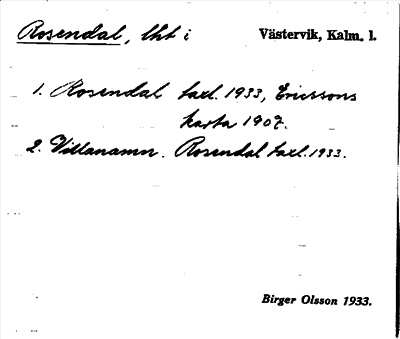 Rosendal, lht i Västervik, Kalm. l.
1. Rosendal taxl. 1933, Ericssons
karta 1907.
2. Villanamn. Rosendal taxl. 1933.
Birger Olsson 1933.